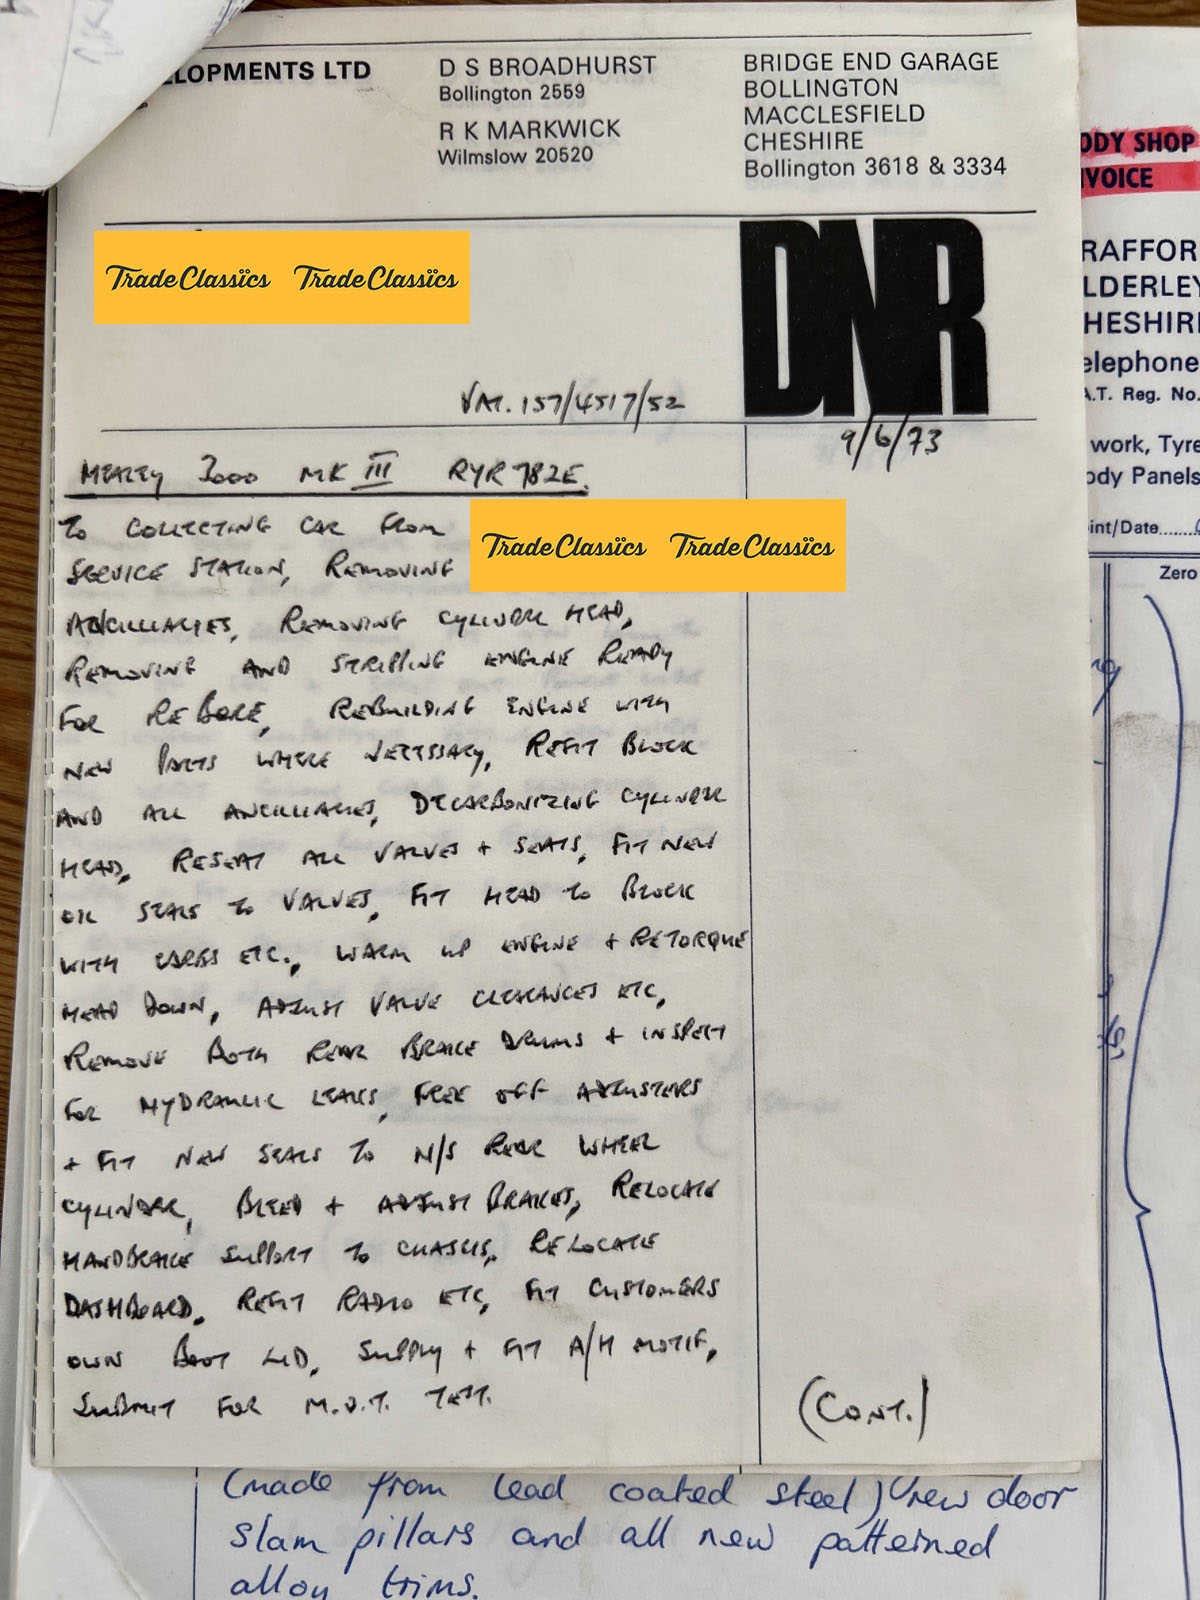 ELOPMENTS LTD
D S BROADHURST
Bollington 2559
R K MARKWICK
Wilmslow 20520
BRIDGE END GARAGE
BOLLINGTON
MACCLESFIELD
CHESHIRE
Bollington 3618 & 3334
TradeClassics TradeClassics
DNR
VAT. 157/4517/52
9/6/73
HEALEY 3000 MK III RYR 782E.
TO COLLECTING CAR FROM
TradeClassics TradeClassics
SERVICE STATION, REMOVING
ANCILLIARIES, REMOVING CYLINDER HEAD,
REMOVING AND STRIPPING ENGINE READY
FOR REBORE, REBUILDING ENGINE WITH
NEW PARTS WHERE NECESSARY, REFIT BLOCK
AND ALL ANCILLIARIES, DECARBONIZING CYLINDER
HEAD, RESEAT ALL VALVES + SEATS, FIT NEW
OIL SEALS TO VALVES, FIT HEAD TO BLOCK
WITH CARBS ETC., WARM UP ENGINE + RETORQUE
HEAD DOWN, ADJUST VALVE CLEARANCES ETC,
REMOVE BOTH REAR BRAKE DRUMS + INSPECT
FOR HYDRAULIC LEAKS, FREE OFF ADJUSTERS
+ FIT NEW SEALS TO N/S REAR WHEEL
CYLINDER, BLEED + ADJUST BRAKES, RELOCATE
HANDBRAKE SUPPORT TO CHASSIS, RELOCATE
DASHBOARD, REFIT RADIO ETC, FIT CUSTOMERS
OWN BOOT LID, SUPPLY + FIT A/H MOTIF,
SUBMIT FOR M.O.T. TEST.
(CONT.)
ODY SHOP
VOICE
RAFFOR
LDERLEY
HESHIR
elephone
A.T. Reg. No.
work, Tyre
ody Panels
int/Date
Zero
(made from lead coated steel) new door
slam pillars and all new patterned
alloy trims.